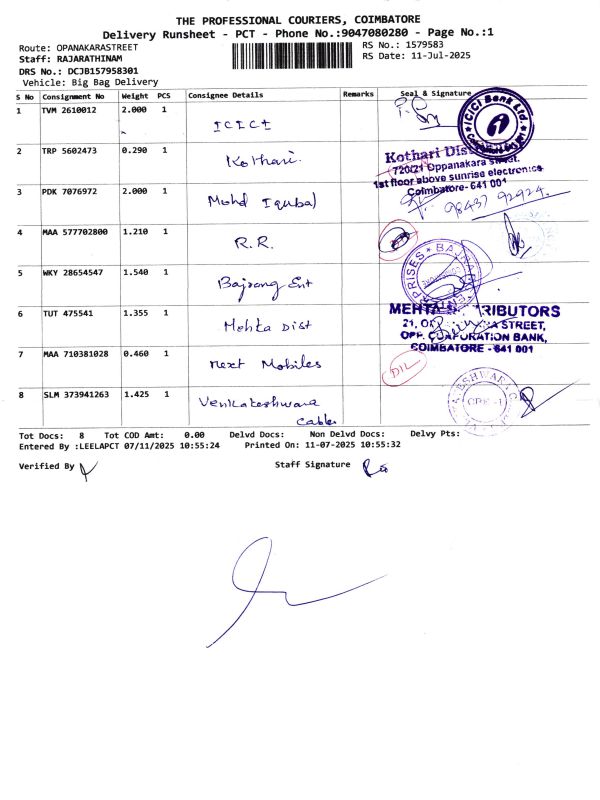 THE PROFESSIONAL COURIERS, COIMBATORE
Delivery Runsheet - PCT - Phone No.:9047080280 - Page No.:1
Route: OPANAKARASTREET
RS No.: 1579583
Staff: RAJARATHINAM
RS Date: 11-Jul-2025
DRS No.: DCJB157958301
Vehicle: Big Bag Delivery
S No Consignment No Weight PCS Consignee Details Remarks Seal & Signature
1 TVM 2610012 2.000 1 ICICI
ICICI Bank Ltd.
2 TRP 5602473 0.290 1 Kothari.
Kothari
720/21 Oppanakara Street,
1st floor above sunrise electronics
Coimbatore- 641 001
3 PDK 7076972 2.000 1 Mohd Iqubal
98437 92924.
4 MAA 577702800 1.210 1 R.R.
5 WKY 28654547 1.540 1 Bajrang Ent
6 TUT 475541 1.355 1 Mehta Dist
MEHTA
21,
STREET,
OPP. CORPORATION BANK,
COIMBATORE - 641 001
7 MAA 710381028 0.460 1 Next Mobiles
8 SLM 373941263 1.425 1 Venkateshwara
Cables
CBE -1
Tot Docs: 8 Tot COD Amt: 0.00 Delvd Docs: Non Delvd Docs: Delvy Pts:
Entered By :LEELAPCT 07/11/2025 10:55:24 Printed On: 11-07-2025 10:55:32
Verified By
Staff Signature